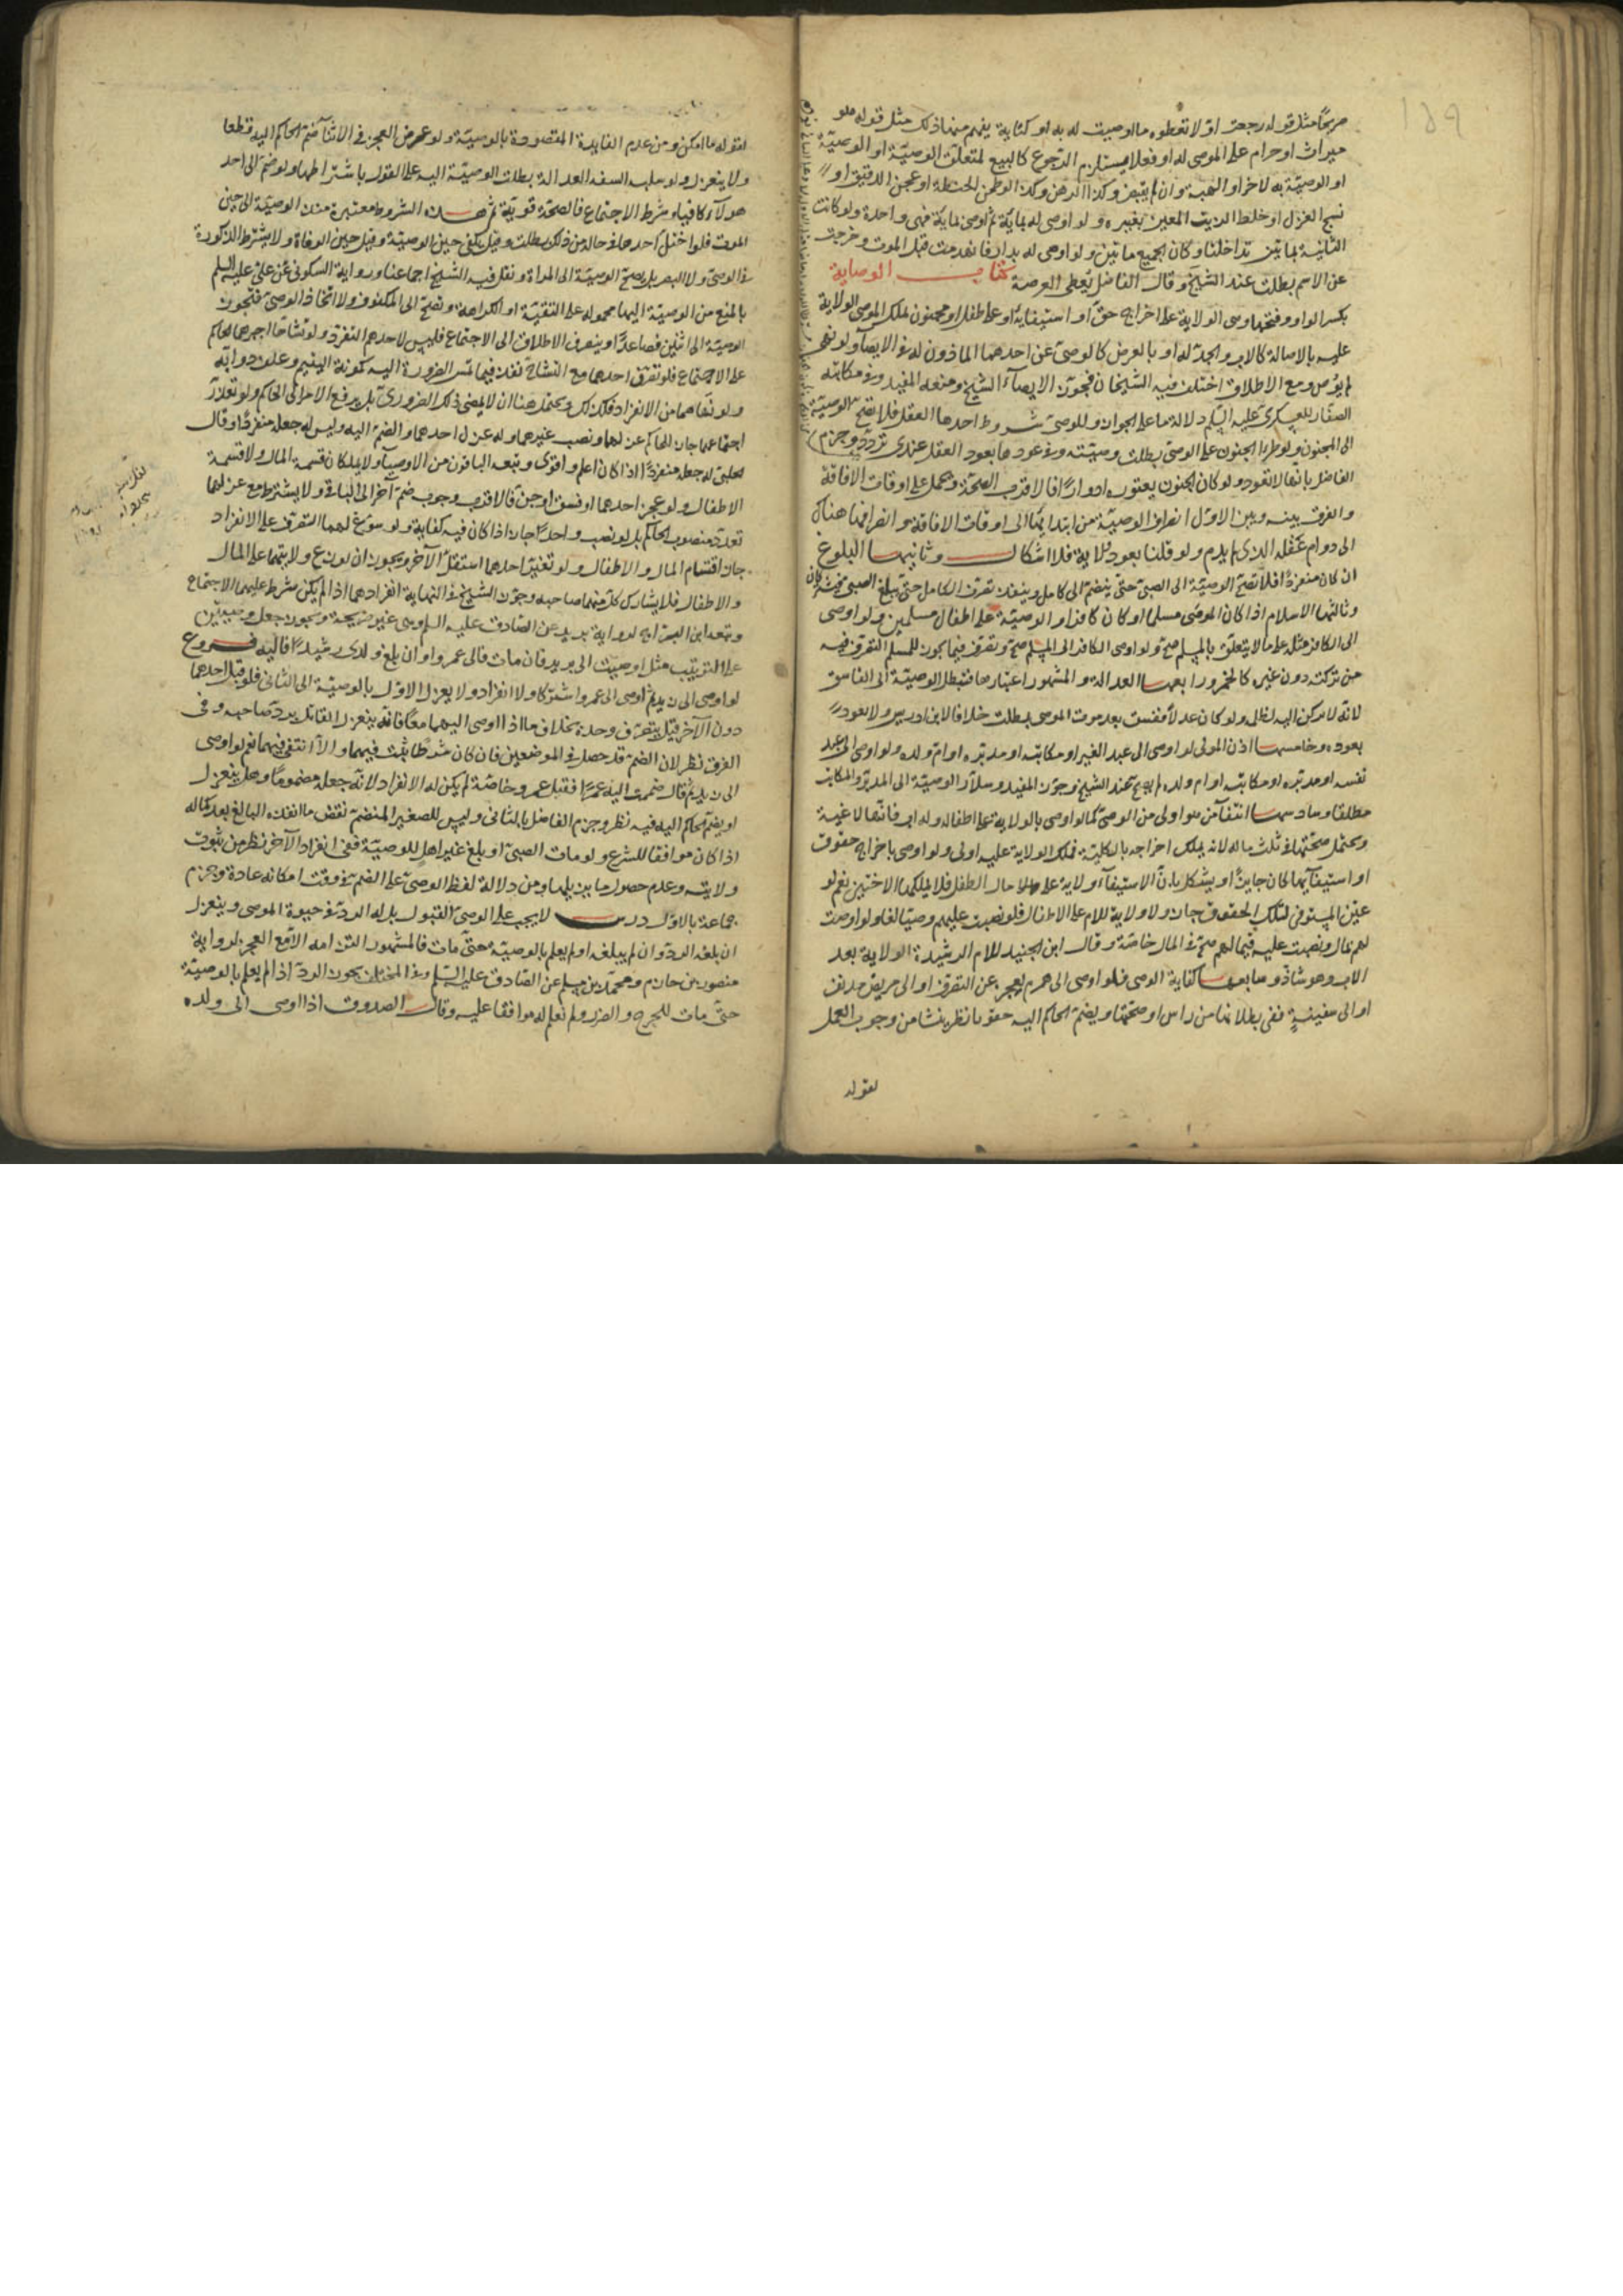 صريحًا مثل قوله رجعت او لا تعطوه ما اوصيت له به او كناية يفهم منها ذلك مثل قوله هو
ميراث او حرام على الموصى له او فعلا يستلزم الرجوع كالبيع لمتعلق الوصيّة او الوصيّة
او الوصيّة به لآخر او الهبة وان لم يقبض وكذا الرهن وكذا لو طحن الحنطة او عجن الدقيق او
نسج الغزل او خلط الزيت المعين بغيره ولو اوصى له بمائة ثم اوصى بمائة فهى واحدة ولو كانت
الثانية بمائتين تداخلتا وكان الجميع ماتين ولو اوصى له بدار فانهدمت قبل الموت وخرجت
عن الاسم بطلت عند الشيخ وقال الفاضل يعطى العرصة كتاب الوصاية
بكسر الواو وفتحها وهى الولاية على اخراج حق او استيفائه او على طفل او مجنون يملك الموصى الولاية
عليه بالاصالة كالاب والجد له او بالعرض كالوصى عن احدهما الماذون له فى الايصآء ولو نهى
لم يوص ومع الاطلاق اختلف فيه الشيخان فجوّز الايصآء الشيخ ومنعه المفيد وفى مكاتبة
الصفّار للعسكرى عليه السلم دلالة ما على الجواز وللوصى شروط احدها العقل فلا تصح الوصيّة
الى المجنون ولو طرا الجنون على الوصى بطلت وصيّته وفى عودها بعود العقل عندى تردّد وجزم
الفاضل بانّها لا تعود ولو كان الجنون يعتوره ادوارًا فالاقرب الصحّة وتحمل على اوقات الافاقة
والفرق بينه وبين الاوّل انصراف الوصيّة من ابتدائها الى اوقات الافاقة وانصرافها هناك
الى دوام عقله الذى لم يدم ولو قلنا بعود ولايته فلا اشكال وثانيها البلوغ
ان كان منفردًا فلا تصحّ الوصيّة الى الصبىّ حتى ينضمّ الى كامل وينفذ تصرف الكامل حتى يبلغ الصبى فيشتركان
وثالثها الاسلام اذا كان الموصى مسلما او كان كافرا والوصيّة على اطفال مسلمين ولو اوصى
الى الكافر مثله على ما لا يتعلق بالمسلم صحّ ولو اوصى الكافر الى المسلم صحّ وتصرف فيما يجوز للمسلم التصرف فيه
من تركته دون غيره كالخمر ورابعها العدالة والمشهور اعتبارها فتبطل الوصيّة الى الفاسق
لانّه لا يركن اليه لظالم ولو كان عدلا ففسق بعد موت الموصى بطلت خلافا لابن ادريس ولا يعود
بعوده وخامسها اذن المولى لو اوصى الى عبد الغير او مكاتبه او مدبّره او ام ولده ولو اوصى الى عبد
نفسه او مدبّره او مكاتبه او ام ولده لم يصحّ عند الشيخ وجوّز المفيد وسلّار الوصيّة الى المدبّر والمكاتب
مطلقا وسادسها انتفآء من هو اولى من الوصى كما لو اوصى بالولاية على اطفاله وله اب فانّها لاغية
ويحتمل صحّتها فى ثلث ماله لانه يملك اخراجه بالكليّة فملك الولاية عليه اولى ولو اوصى باخراج حقوق
او استيفائها كان جايزًا ويشكل بانّ الاستيفآء ولاية على مال الطفل فلا يملكها الاختين نعم لو
عيّن المستوفى لتلك الحقوق جاز ولا ولاية للام على الاطفال فلو نصبت عليهم وصيّا لغا ولو اوصت
لهم بمال ونصبت عليه قيما لهم صحّ فى المال خاصّة وقال ابن الجنيد للام الرشيدة الولاية بعد
الاب وهو شاذّ وسابعها كفاية الوصى فلو اوصى الى هرم يعجز عن التصرف او الى مريض مدنف
او الى سفيه ففى بطلانها من راس او صحّتها ويضمّ الحاكم اليه مقويا نظر ينشا من وجوب العمل
لقوله
لقوله ما امكن ومن عدم الفايدة المقصودة بالوصيّة ولو عرض العجز فى الاثنآء ضمّ الحاكم اليه قطعا
ولا ينعزل ولو سلب السفه العدالة بطلت الوصيّة اليه على القول باشتراطها ولو ضمّ الى احد
هولآء كافيا وشرط الاجتماع فالصحّة قويّة ثم هذه الشروط معتبرة منذ الوصيّة الى حين
الموت فلو اختل احدها فى حالة من ذلك بطلت وقيل يكفى حين الوصيّة وقيل حين الوفاة ولا يشترط الذكورة
فى الوصى ولا البصر بل يصحّ الوصيّة الى المراة ونقل فيه الشيخ اجماعنا ورواية السكونى عن علىّ عليه السلم
بالمنع من الوصيّة اليها محمولة على التقيّة او الكراهة وتصحّ الى المكفوف ولا اتخاذ الوصى فتجوز
الوصيّة الى اثنين فصاعدًا وينصرف الاطلاق الى الاجتماع فليس لاحدهم التفرّد ولو تشاحّا اجبرهما الحاكم
على الاجتماع فلو تصرّف احدهما مع التشاحّ نفذ فيما تمس الضرورة اليه كمونة اليتيم وعلف دوابّه
ولو نهاهما من الانفراد فكذلك ويحتمل هنا ان لا يمضى ذلك الضرورى بل يرفع الامر الى الحاكم ولو تعذّر
اجتماعهما جاز للحاكم عزلهما ونصب غيرهما وله عزل احدهما والضم اليه وليس له جعله منفردًا وقال
الحلبى له جعله منفردًا اذا كان اعلم واقوى وتبعه الباقون من الاوصيآء ولا يملكان قسمة المال ولا قسمة
الاطفال ولو عجز احدهما او فسق او جنّ فالاقرب وجوب ضمّ آخر الى الباقى ولا يشترط مع عزلهما
تعدّد منصوب الحاكم بل لو نصب واحدًا جاز اذا كان فيه كفاية ولو سوّغ لهما التصرف على الانفراد
جاز اقتسام المال والاطفال ولو تغيّر احدهما استقلّ الآخر ويجوز ان توزع ولايتهما على المال
والاطفال فلا يشارك كلّ منهما صاحبه وجوّز الشيخ فى النهاية انفرادهما اذا لم يكن شرط عليهما الاجتماع
وتبعه ابن البراج لرواية بريد عن الصادق عليه السلم وهى غير صريحة ويجوز جعل وصيّين
على الترتيب مثل اوصيت الى زيد فان مات فالى عمرو او ان بلغ ولدى رشيدًا فاليه فروع
لو اوصى الى زيد ثم اوصى الى عمرو اشتركا ولا انفراد ولا يعزل الاوّل بالوصيّة الى الثانى فلو قبل احدهما
دون الآخر قيل يتصرّف وحده بخلاف ما اذا اوصى اليهما معًا فانّه ينعزل القابل بردّ صاحبه وفى
الفرق نظر لان الضمّ قد حصل فى الموضعين فان كان شرطًا ثبت فيهما والّا انتفى فيهما نعم لو اوصى
الى زيد ثم قال ضممت اليه عمرًا فقبل عمرو خاصّة لم يكن له الانفراد لانّه جعله مضمومًا وهل ينعزل
او يضمّ الحاكم اليه فيه نظر وجزم الفاضل بالثانى وليس للصغير المنضمّ نقض ما انفذه البالغ بعد كماله
اذا كان موافقا للشرع ولو مات الصبىّ او بلغ غير اهل للوصيّة ففى انفراد الآخر نظر من ثبوت
ولايته وعدم حصول ما يزيلها ومن دلالة لفظ الوصى على الضم فى وقت امكانه عادة وجزم
جماعة بالاوّل درس لا يجب على الوصىّ القبول بل له الردّ فى حيوة الموصى وينعزل
ان بلغه الردّ وان لم يبلغه او لم يعلم بالوصيّة حتّى مات فالمشهور التزامه الّا مع العجز لرواية
منصور بن حازم ومحمّد بن مسلم عن الصّادق عليه السّلم وفى المختلف يجوز الردّ اذا لم يعلم بالوصيّة
حتّى مات للحرج والضرر ولم نعلم له موافقا عليه وقال الصدوق اذا اوصى الى ولده